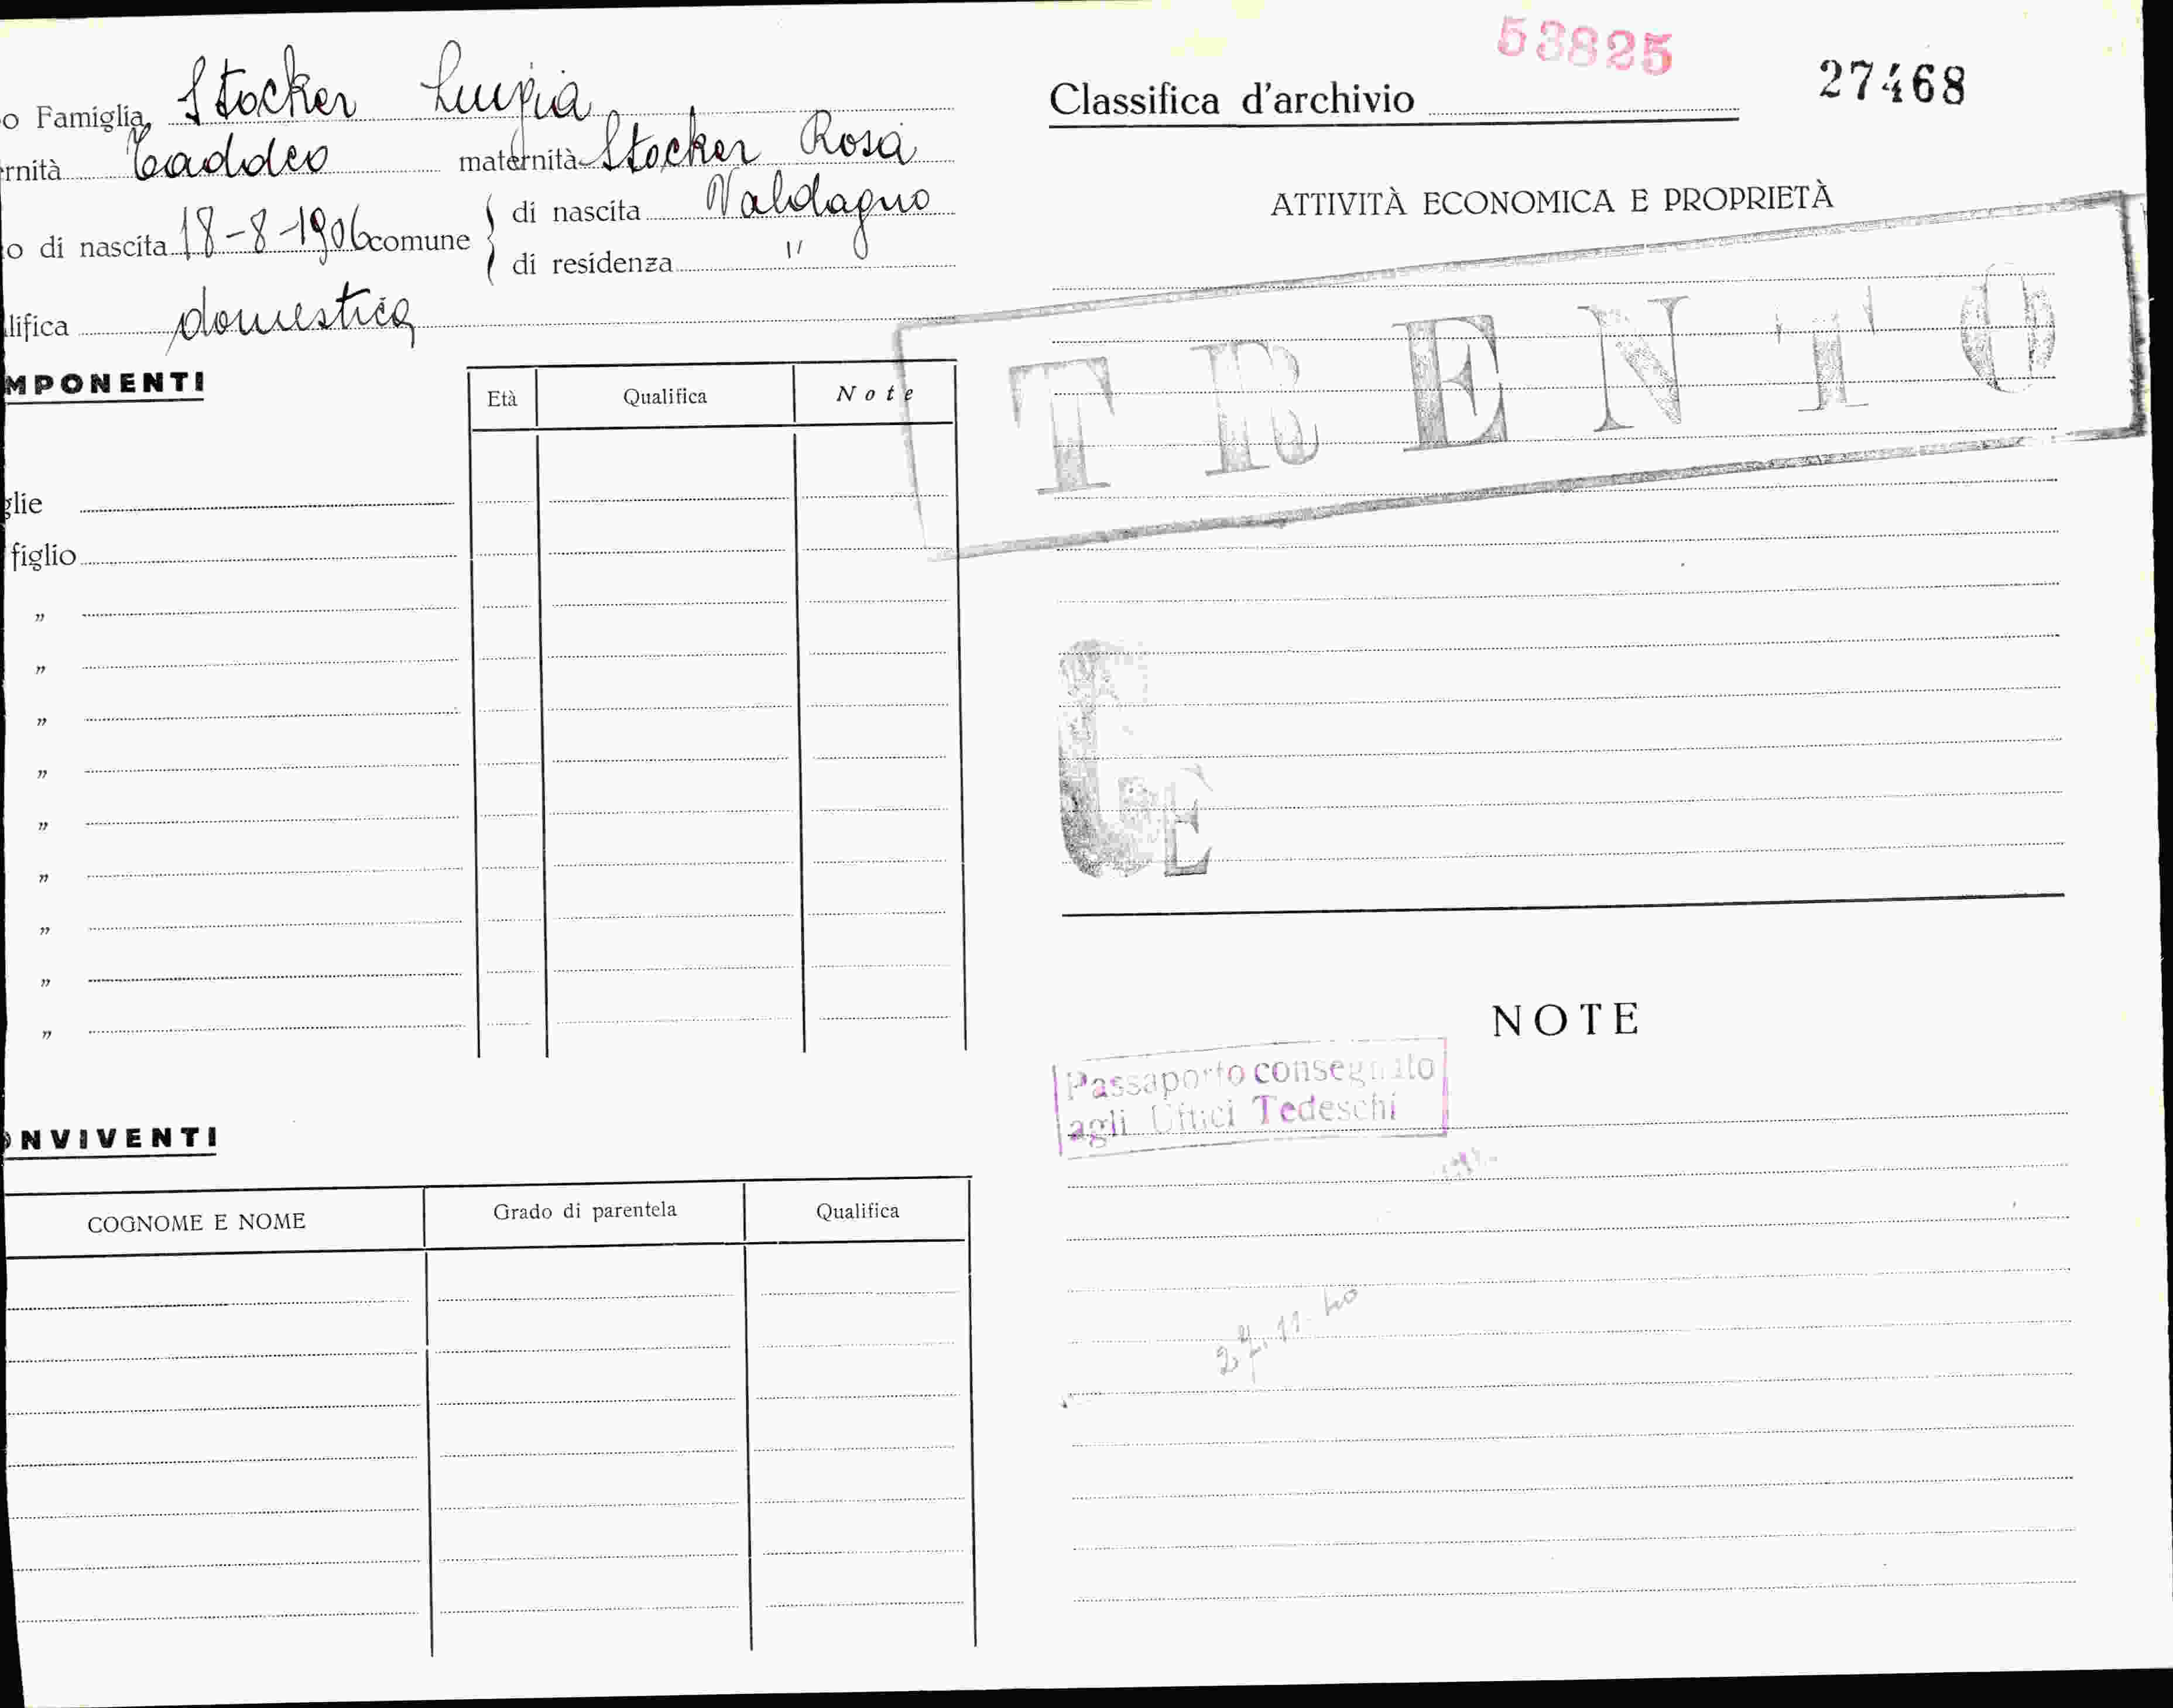 o Famiglia Stocker Luigia
rnità Taddeo maternità Stocker Rosa
o di nascita 18-8-1906 comune
di nascita Valdagno
di residenza "
lifica domestica
MPONENTI
Età Qualifica Note
glie
figlio
"
"
"
"
"
"
"
"
"
ONVIVENTI
COGNOME E NOME Grado di parentela Qualifica
53825
27468
Classifica d'archivio
ATTIVITÀ ECONOMICA E PROPRIETÀ
TRENTO
E
NOTE
Passaporto consegnato
agli Uffici Tedeschi
27.11.40